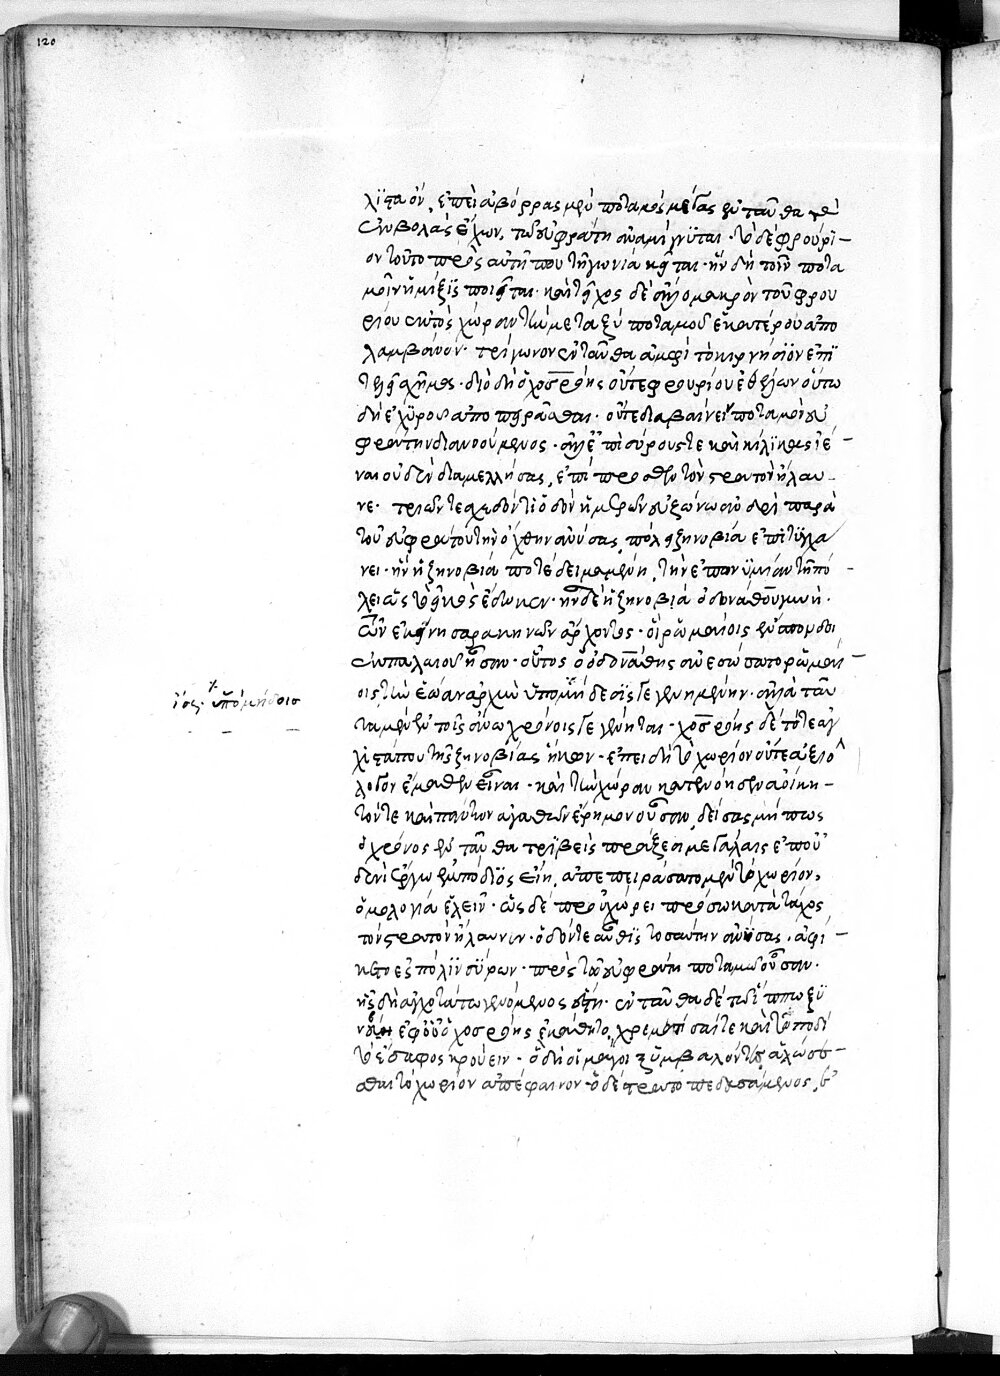 120
λισταόν, ἐπεὶ ἀβόρρας μὲν ποταμὸς μέγας ἐνταῦθα τὰς
ἐκβολὰς ἔχων, τῷ εὐφράτῃ ἀναμίγνυται· τὸ δὲ φρούρι-
ον τοῦτο πρὸς αὐτῇ που τῇ γωνίᾳ κεῖται· ἣν δὴ τοῖν ποτα
μοῖν ἡ μῖξις ποιεῖται· καὶ τεῖχος δὲ ἄλλο μακρὸν τοῦ φρου
ρίου ἐκτὸς χώραν τὴν μεταξὺ ποταμοῦ ἑκατέρου ἀπο
λαμβάνον· τρίγωνον ἐνταῦθα ἀμφὶ τὸ κιρκήσιον ἐπι
τελεῖ σχῆμα· διὸ δὴ ὁ χοσρόης οὔτε φρουρίου ἐθέλων οὕτω
δὴ ἐχυροῦ ἀποπειρᾶσθαι· οὔτε διαβαίνειν ποταμὸν εὐ
φράτην διανοούμενος· ἀλλ' ἐπὶ σύρους τε καὶ κίλικας ἰέ-
ναι οὐδὲν διαμελλήσας, ἐπίπροσθεν τὸν στρατὸν ἤλαυ-
νε· τριῶν τε σχεδόν τι ὁδὸν ἡμερῶν εὐζώνῳ ἀνδρὶ παρὰ
τοῦ εὐφράτου τὴν ὄχθην ἀνύσας, πόλει ζηνοβίᾳ ἐπιτυγχά
νει· ἣν ἡ ζηνοβία ποτὲ δειμαμένη, τὴν ἐπωνυμίαν τῇ πό-
λει ὡς τὸ εἰκὸς ἔδωκεν· ἦν δὲ ἡ ζηνοβία ὀδονάθου γυνή·
τῶν ἐκείνῃ σαρακηνῶν ἄρχοντος· οἳ ῥωμαίοις ἔνσπονδοι
ἐκ παλαιοῦ ἦσαν· οὗτος ὁ ὀδονάθης ἀνεσώσατο ῥωμαί-
οις τὴν ἑῴαν ἀρχὴν ὑπὸ μήδοις γεγενημένην· ἀλλὰ ταῦ
τα μὲν ἐν τοῖς ἄνω χρόνοις γεγένηται· χοσρόης δὲ τότε ἀγ
χιστά που τῆς ζηνοβίας ἥκων· ἐπειδὴ τὸ χωρίον οὔτε ἀξιό
λογον ἔμαθεν εἶναι· καὶ τὴν χώραν κατενόησεν ἀοίκη-
τόν τε καὶ πάντων ἀγαθῶν ἔρημον οὖσαν, δείσας μή τις
ὁ χρόνος ἐνταῦθα τριβεὶς πράξεσι μεγάλαις ἐπ' οὐ
δενὶ ἔργῳ ἐμπόδιος εἴη, ἀπεπειράσατο μὲν τὸ χωρίον,
ὁμολογίᾳ ἑλεῖν· ὡς δὲ προὐχώρει πρόσω κατὰ τάχος
τὸν στρατὸν ἤλαυνεν· ὁδόν τε αὖθις τοσαύτην ἀνύσας, ἀφί-
κετο ἐς πόλιν σύρων· πρὸς τῷ εὐφράτῃ ποταμῷ οὖσαν·
ἧς δὴ ἀγχοτάτω γενόμενος ἔστη· ἐνταῦθα δέ τῳ ἵππῳ ξυ
νέβη ἐφ' οὗ ὁ χοσρόης ἐκάθητο, χρεμετίσαι τε καὶ τῷ ποδὶ
τὸ ἔδαφος κρούειν· ὃ δὴ οἱ μάγοι ξυμβαλόντες ἁλώσε-
σθαι τὸ χωρίον ἀπέφαινον· ὁ δὲ στρατοπεδευσάμενος,
ἴσ. ὑπὸ μήδοισ